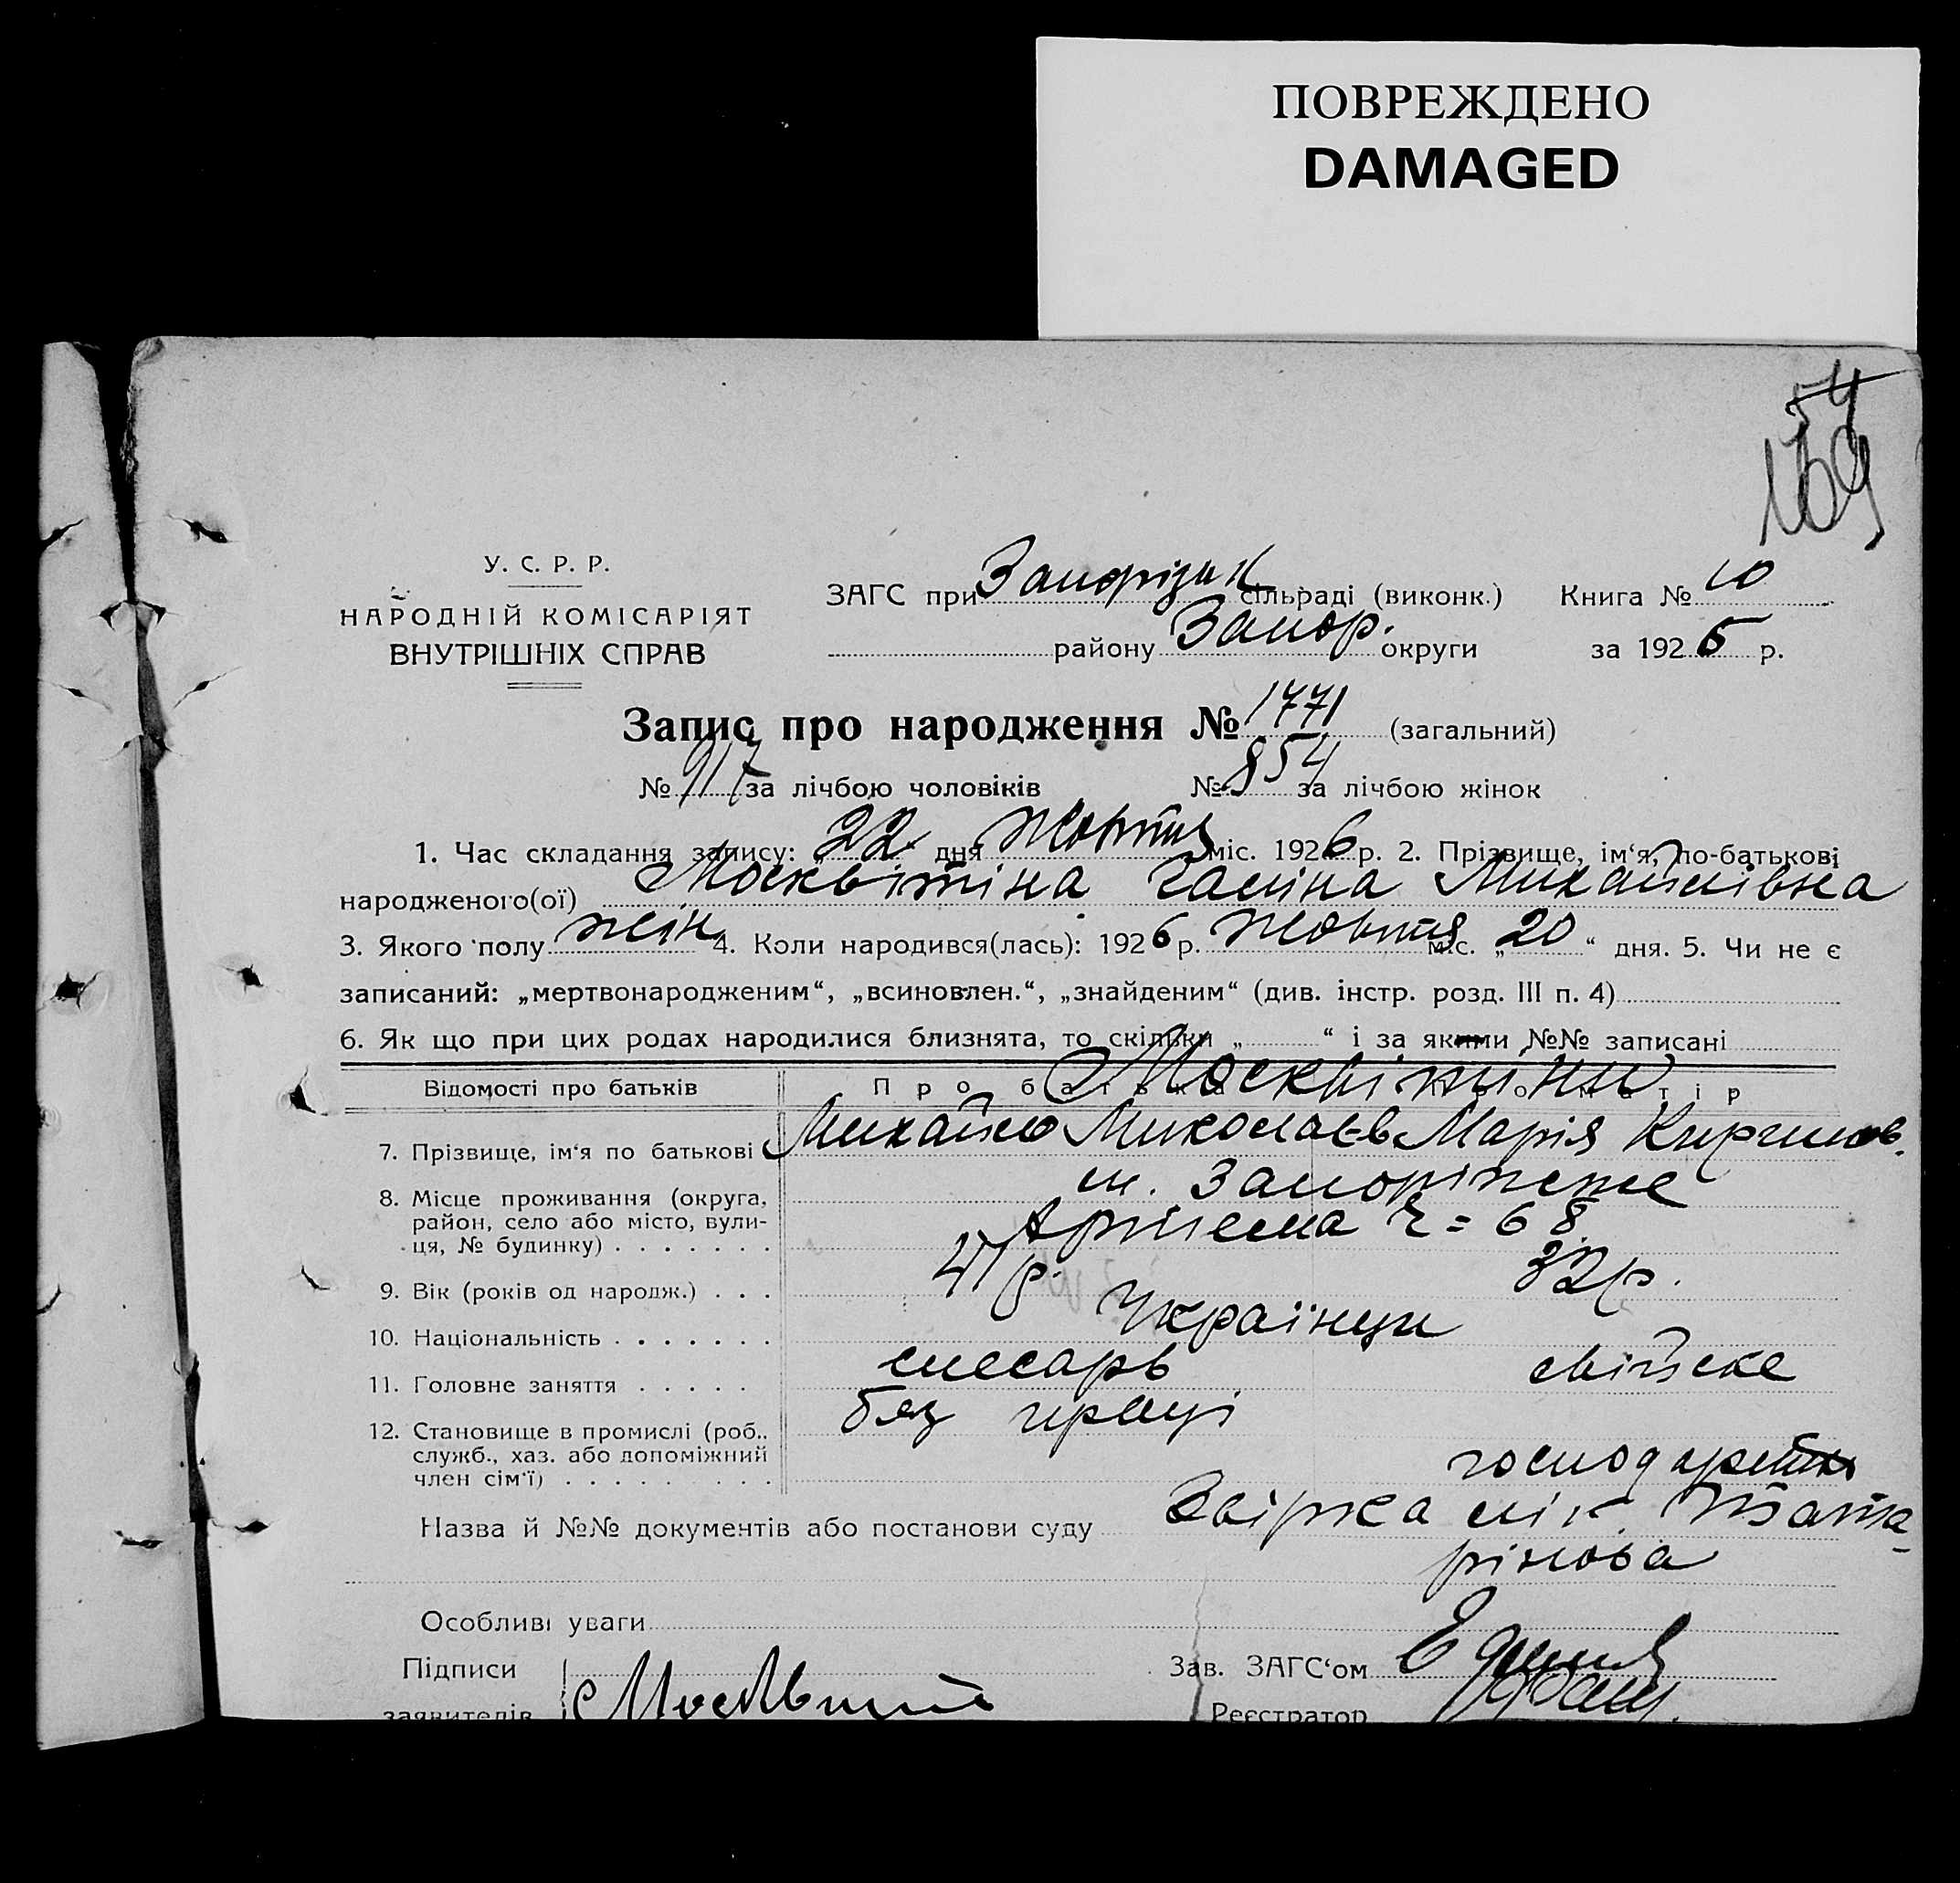 ПОВРЕЖДЕНО
DAMAGED
54
У. С. Р. Р.
НАРОДНІЙ КОМІСАРІЯТ
ВНУТРІШНІХ СПРАВ
ЗАГС при Запоріз сільраді (виконк.) Книга № 10
району Запор. округи за 1926 р.
Запис про народження № 1771 (загальний)
№ 917 за лічбою чоловіків № 854 за лічбою жінок
1. Час складання запису: „22“ дня Жовтня міс. 1926 р. 2. Прізвище, ім‘я, по-батькові
народженого(ої) Москвітіна Галіна Михайлівна
3. Якого полу жін 4. Коли народився(лась): 1926 р. Жовтня міс. „20“ дня. 5. Чи не є
записаний: „мертвонародженим“, „всиновлен.“, „знайденим“ (див. інстр. розд. III п. 4)
6. Як що при цих родах народилися близнята, то скільки „ “ і за якими №№ записані
Відомості про батьків Про батька Про матір
Москвітіни
7. Прізвище, ім‘я по батькові Михайло Миколаєв Марія Кирилов.
8. Місце проживання (округа, м. Запоріжже
район, село або місто, вули-
ця, № будинку) Артема 68
9. Вік (років од народж.) 41 р. 32 р.
10. Національність Українци
11. Головне заняття слесарь свійске
12. Становище в промислі (роб., без праці
служб., хаз. або допоміжний
член сім‘ї) господарство
Назва й №№ документів або постанови суду Звірка лік. Тата-
рінова
Особливі уваги
Підписи Зав. ЗАГС‘ом
заявителів Реєстратор